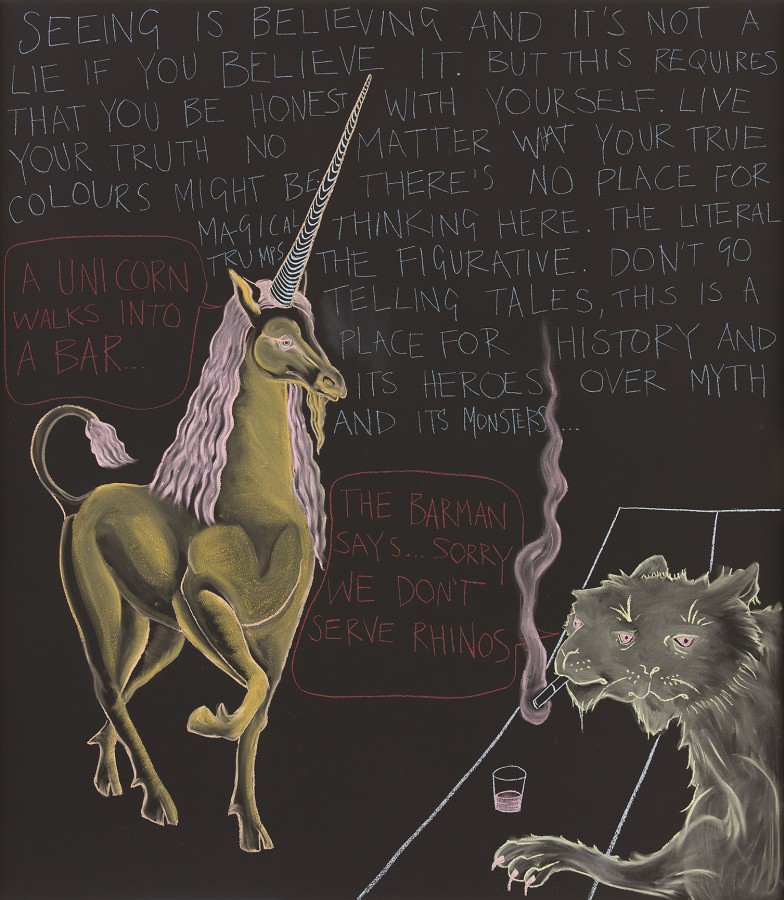 SEEING IS BELIEVING AND IT'S NOT A
LIE IF YOU BELIEVE IT. BUT THIS REQUIRES
THAT YOU BE HONEST WITH YOURSELF. LIVE
YOUR TRUTH NO MATTER WHAT YOUR TRUE
COLOURS MIGHT BE THERE'S NO PLACE FOR
MAGICAL THINKING HERE. THE LITERAL
TRUMPS THE FIGURATIVE. DON'T GO
TELLING TALES, THIS IS A
PLACE FOR HISTORY AND
ITS HEROES OVER MYTH
AND ITS MONSTERS...
A UNICORN
WALKS INTO
A BAR...
THE BARMAN
SAYS... SORRY
WE DON'T
SERVE RHINOS